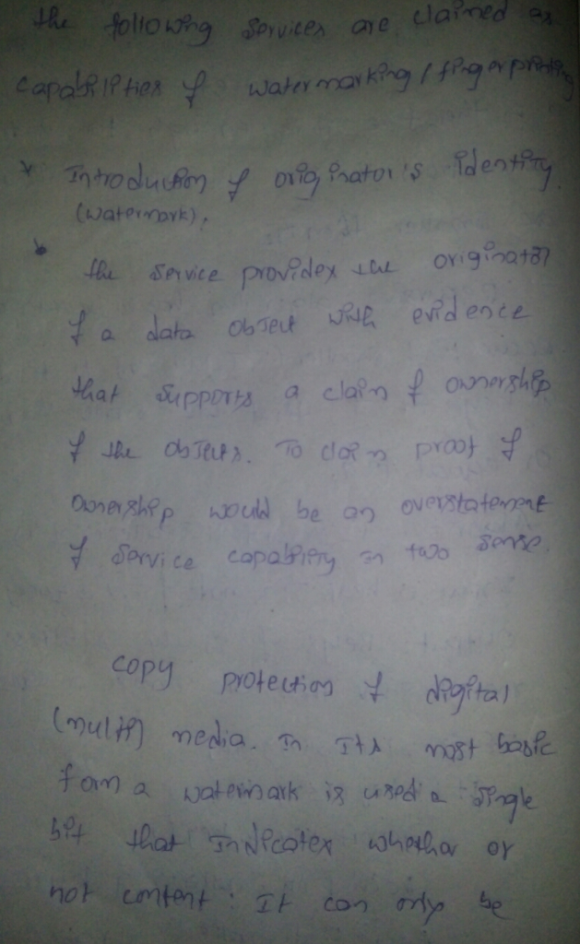 the following services are claimed as
capabilities of watermarking/fingerprinting
* Introduction of originator's identity.
(watermark).
the service provides the originator
of a data object with evidence
that supports a claim of ownership
of the objects. To claim proof of
ownership would be an overstatement
of service capability in two sense.
copy protection of digital
(multi) media. In Its most basic
form a watermark is used a single
bit that Indicates whether or
not content. It can only be